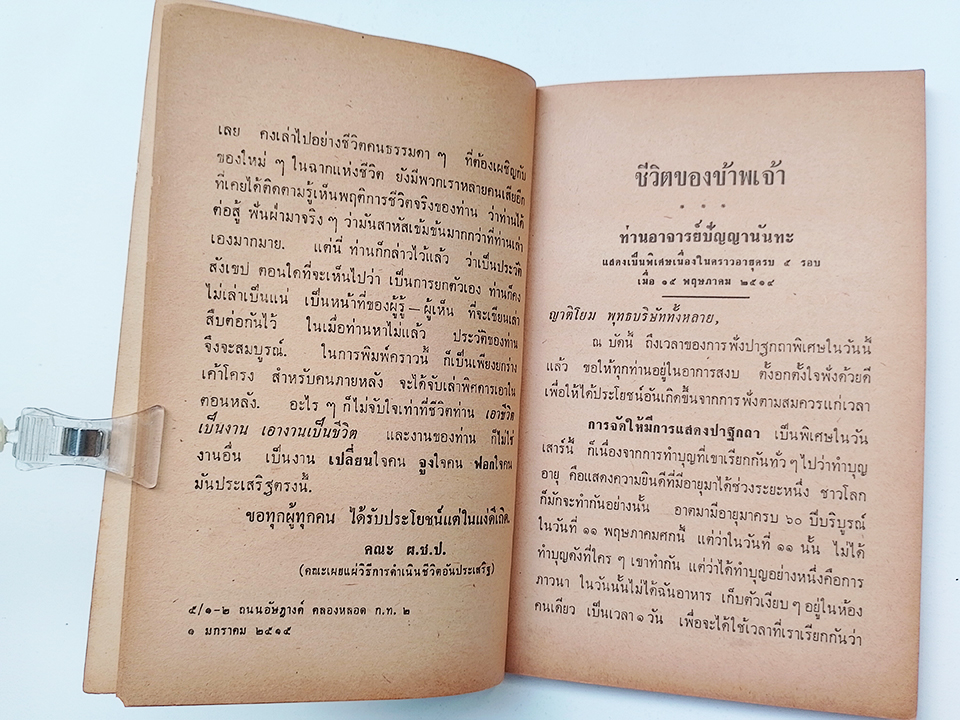 เลย คงเล่าไปอย่างชีวิตคนธรรมดา ๆ ที่ต้องเผชิญกับ
ของใหม่ ๆ ในฉากแห่งชีวิต ยังมีพวกเราหลายคนเสียอีก
ที่เคยได้ติดตามรู้เห็นพฤติการชีวิตจริงของท่าน ว่าท่านได้
ต่อสู้ ฟันฝ่ามาจริง ๆ ว่ามันสาหัสเข้มข้นมากกว่าที่ท่านเล่า
เองมากมาย. แต่นี่ ท่านก็กล่าวไว้แล้ว ว่าเป็นประวัติ
สังเขป ตอนใดที่จะเห็นไปว่า เป็นการยกตัวเอง ท่านก็คง
ไม่เล่าเป็นแน่ เป็นหน้าที่ของผู้รู้ — ผู้เห็น ที่จะเขียนเล่า
สืบต่อกันไว้ ในเมื่อท่านหาไม่แล้ว ประวัติของท่าน
จึงจะสมบูรณ์. ในการพิมพ์คราวนี้ ก็เป็นเพียงยกร่าง
เค้าโครง สำหรับคนภายหลัง จะได้จับเล่าพิศดารเอาใน
ตอนหลัง. อะไร ๆ ก็ไม่จับใจเท่าที่ชีวิตท่าน เอาชีวิต
เป็นงาน เอางานเป็นชีวิต และงานของท่าน ก็ไม่ใช่
งานอื่น เป็นงาน เปลี่ยนใจคน จูงใจคน ฟอกใจคน
มันประเสริฐตรงนี้.
ขอทุกผู้ทุกคน ได้รับประโยชน์แต่ในแง่ดีเถิด.
คณะ ผ.ช.ป.
(คณะเผยแผ่วิธีการดำเนินชีวิตอันประเสริฐ)
๕/๑-๒ ถนนอัษฎางค์ คลองหลอด ก.ท. ๒
๑ มกราคม ๒๕๑๕
ชีวิตของข้าพเจ้า
ท่านอาจารย์ปัญญานันทะ
แสดงเป็นพิเศษเนื่องในคราวอายุครบ ๕ รอบ
เมื่อ ๑๕ พฤษภาคม ๒๕๑๔
ญาติโยม พุทธบริษัททั้งหลาย,
ณ บัดนี้ ถึงเวลาของการฟังปาฐกถาพิเศษในวันนี้
แล้ว ขอให้ทุกท่านอยู่ในอาการสงบ ตั้งอกตั้งใจฟังด้วยดี
เพื่อให้ได้ประโยชน์อันเกิดขึ้นจากการฟังตามสมควรแก่เวลา
การจัดให้มีการแสดงปาฐกถา เป็นพิเศษในวัน
เสาร์นี้ ก็เนื่องจากการทำบุญที่เขาเรียกกันทั่ว ๆ ไปว่าทำบุญ
อายุ คือแสดงความยินดีที่มีอายุมาได้ช่วงระยะหนึ่ง ชาวโลก
ก็มักจะทำกันอย่างนั้น อาตมามีอายุมาครบ ๖๐ ปีบริบูรณ์
ในวันที่ ๑๑ พฤษภาคมศกนี้ แต่ว่าในวันที่ ๑๑ นั้น ไม่ได้
ทำบุญดังที่ใคร ๆ เขาทำกัน แต่ว่าได้ทำบุญอย่างหนึ่งคือการ
ภาวนา ในวันนั้นไม่ได้ฉันอาหาร เก็บตัวเงียบ ๆ อยู่ในห้อง
คนเดียว เป็นเวลา ๑ วัน เพื่อจะได้ใช้เวลาที่เราเรียกกันว่า